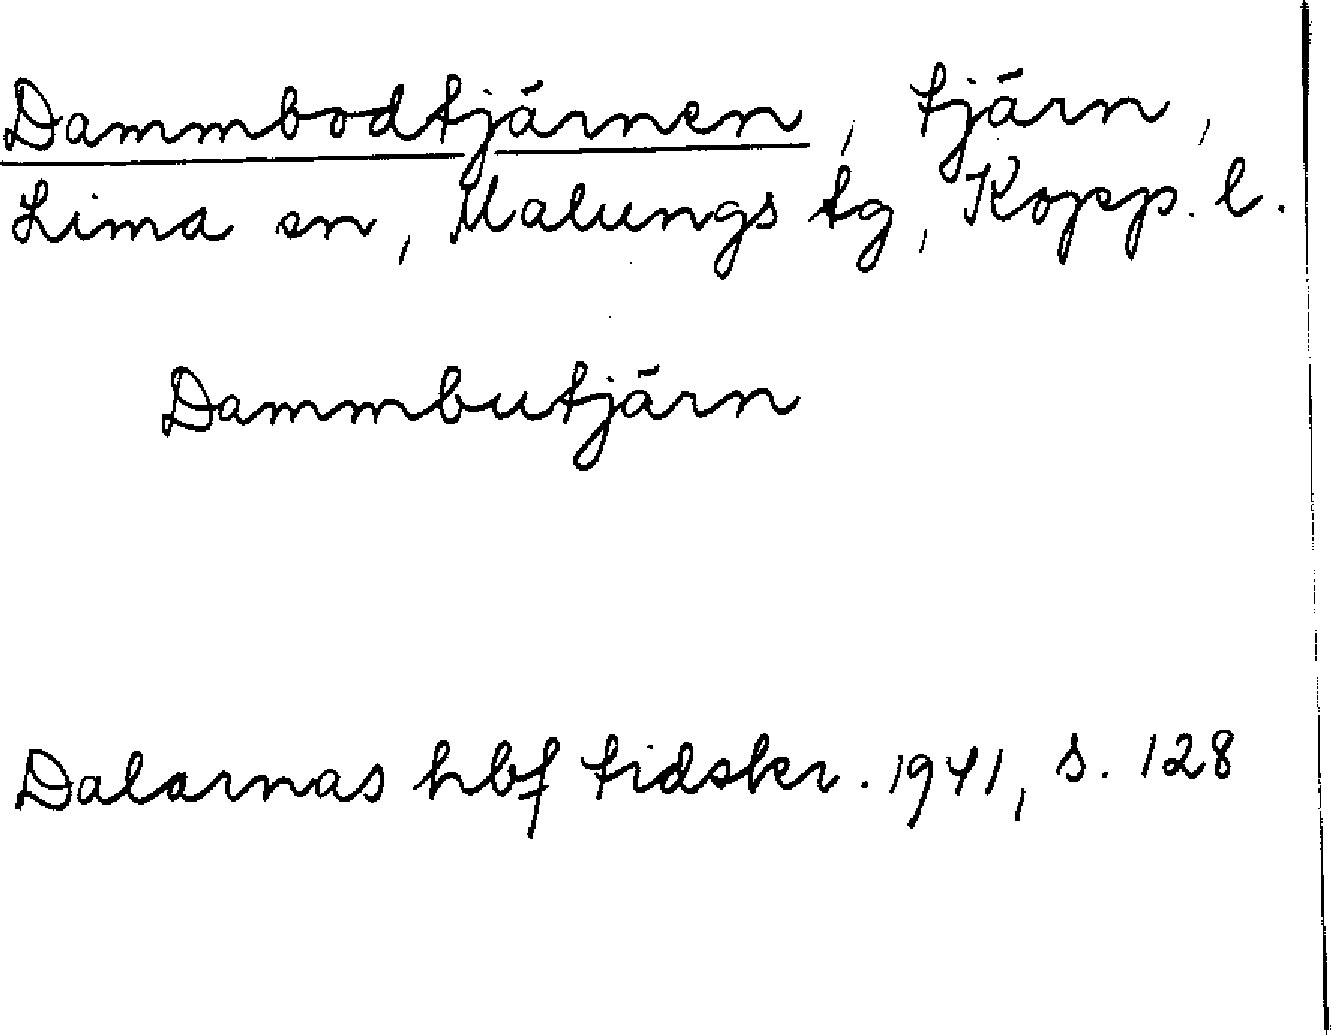 Dammbodtjärnen, tjärn,
Lima sn, Malungs tg, Kopp. l.
Dammbutjärn
Dalarnas hbf tidskr. 1941, s. 128